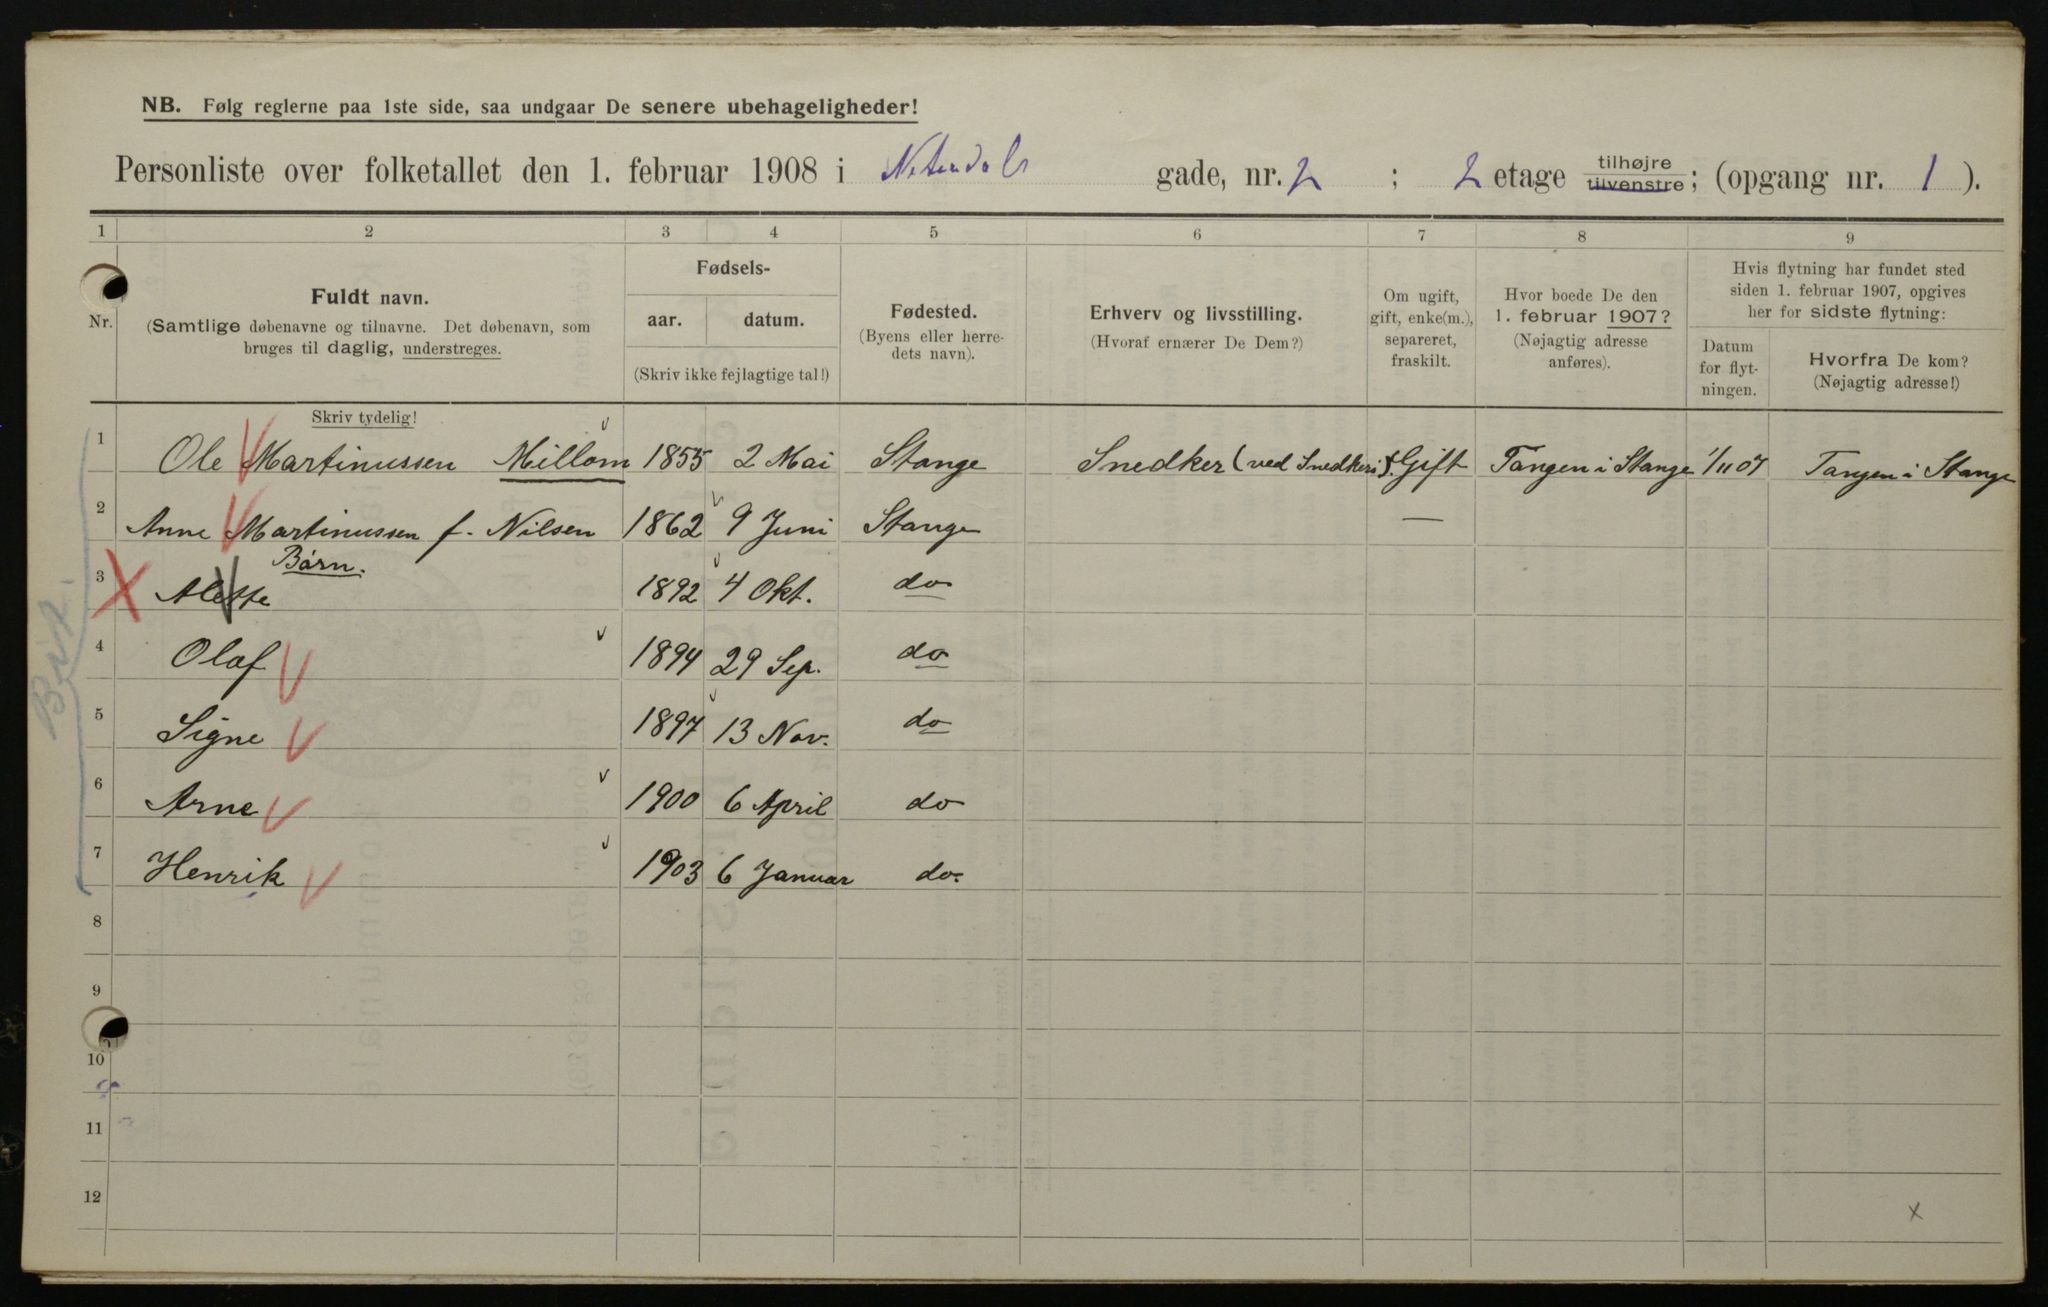 NB. Følg reglerne paa 1ste side, saa undgaar De senere ubehageligheder!
Personliste over folketallet den 1. februar 1908 i gade, nr. 2 ; 2 etage tilhøjre tilvenstre; (opgang nr. 1 ).
1 2 3 4 5 6 7 8 9
Nr.
Fuldt navn.
(Samtlige døbenavne og tilnavne. Det døbenavn, som
bruges til daglig, understreges.
Skriv tydelig!
Fødsels-
aar. datum.
(Skriv ikke fejlagtige tal!)
Fødested.
(Byens eller herre-
dets navn).
Erhverv og livsstilling.
(Hvoraf ernærer De Dem?)
Om ugift,
gift, enke(m.),
separeret,
fraskilt.
Hvor boede De den
1. februar 1907?
(Nøjagtig adresse
anføres).
Hvis flytning har fundet sted
siden 1. februar 1907, opgives
her for sidste flytning:
Datum
for flyt-
ningen.
Hvorfra De kom?
(Nøjagtig adresse!)
1 Ole Martinussen Millom 1855 2 Mai Stange Snedker (ved Snedkeri). Gift Tangen i Stange 1/11 07 Tangen i Stange
2 Anne Martinussen f. Nilsen 1862 9 Juni Stange —
Børn.
3 Alette 1892 4 Okt. do
4 Olaf 1894 29 Sep. do
5 Signe 1897 13 Nov. do
6 Arne 1900 6 April do
7 Henrik 1903 6 Januar do.
8
9
10
11
12
x